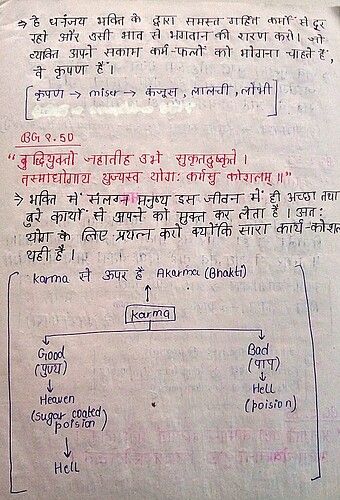 ⇒ हे धनंजय भक्ति के द्वारा समस्त गर्हित कर्मो से दूर
रहो और उसी भाव से भगवान की शरण करो। जो
व्यक्ति अपने सकाम कर्म-फलों को भोगना चाहते हैं,
वे कृपण हैं।
[कृपण → miser → कंजूस, लालची, लोभी]
BG २.50
"बुद्धियुक्तो जहातीह उभे सुकृतदुष्कृते।
तस्माद्योगाय युज्यस्व योगः कर्मसु कौशलम्॥"
→ भक्ति में संलग्न मनुष्य इस जीवन में ही अच्छा तथा
बुरे कार्यो से अपने को मुक्त कर लेता है। अतः
योग के लिए प्रयत्न करो क्योंकि सारा कार्य-कौशल
यही है।
karma से ऊपर है Akarma (Bhakti)
karma
Good
(पुण्य)
Heaven
(sugar coated
poision)
Hell
Bad
(पाप)
Hell
(poision)